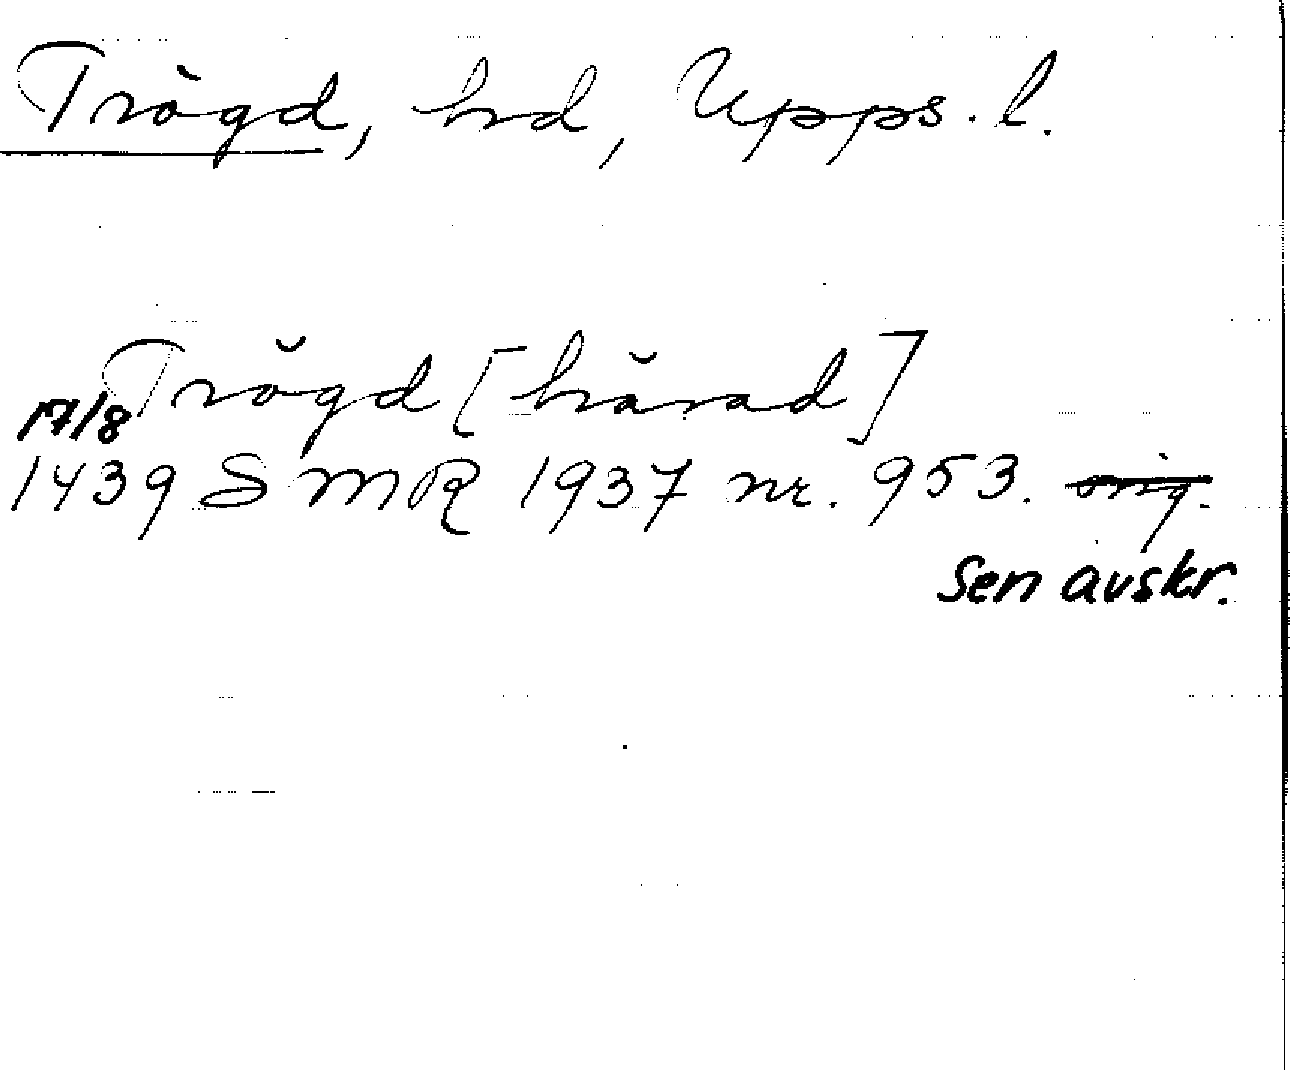 Trögd, hd, Upps. l.
Trögd [härad]
17/8
1439 SMR 1937 nr. 953. orig.
Sen avskr.